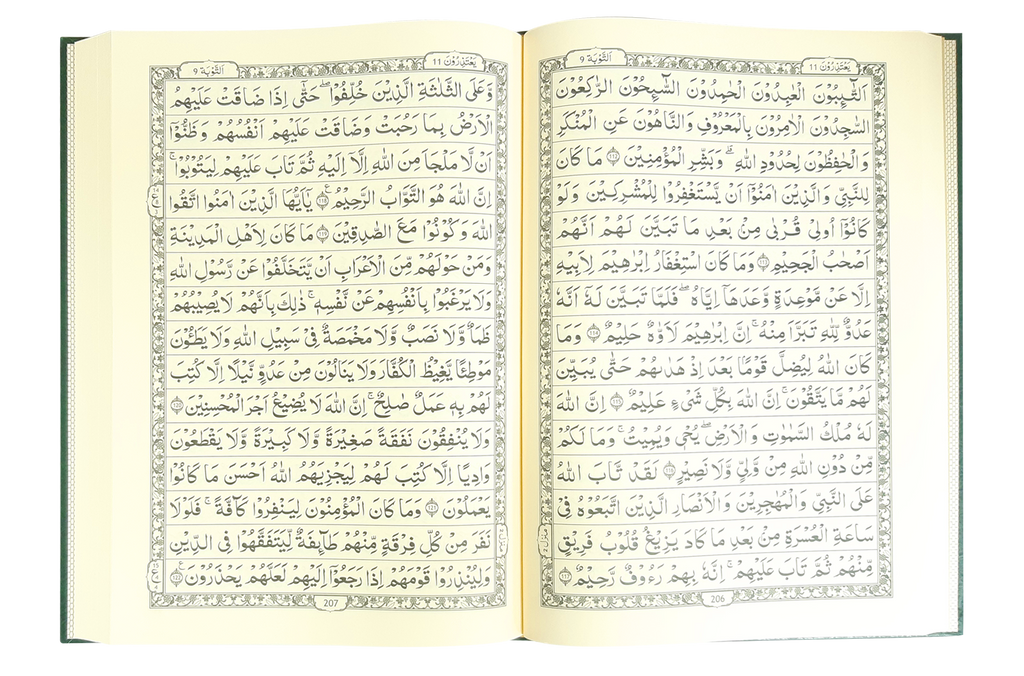 يَعْتَذِرُوْنَ 11
اَلتَّوْبَة 9
اَلتَّآئِبُوْنَ الْعٰبِدُوْنَ الْحٰمِدُوْنَ السَّآئِحُوْنَ الرّٰكِعُوْنَ
السّٰجِدُوْنَ الْاٰمِرُوْنَ بِالْمَعْرُوْفِ وَالنَّاهُوْنَ عَنِ الْمُنْكَرِ
وَالْحٰفِظُوْنَ لِحُدُوْدِ اللّٰهِ ؕ وَبَشِّرِ الْمُؤْمِنِيْنَ ﴿۱۱۲﴾ مَا كَانَ
لِلنَّبِيِّ وَالَّذِيْنَ اٰمَنُوْۤا اَنْ يَّسْتَغْفِرُوْا لِلْمُشْرِكِيْنَ وَلَوْ
كَانُوْۤا اُولِيْ قُرْبٰى مِنْۢ بَعْدِ مَا تَبَيَّنَ لَهُمْ اَنَّهُمْ
اَصْحٰبُ الْجَحِيْمِ ﴿۱۱۳﴾ وَمَا كَانَ اسْتِغْفَارُ اِبْرٰهِيْمَ لِاَبِيْهِ
اِلَّا عَنْ مَّوْعِدَةٍ وَّعَدَهَاۤ اِيَّاهُ ۚ فَلَمَّا تَبَيَّنَ لَهٗۤ اَنَّهٗ
عَدُوٌّ لِّلّٰهِ تَبَرَّاَ مِنْهُ ؕ اِنَّ اِبْرٰهِيْمَ لَاَوَّاهٌ حَلِيْمٌ ﴿۱۱۴﴾ وَمَا
كَانَ اللّٰهُ لِيُضِلَّ قَوْمًۢا بَعْدَ اِذْ هَدٰىهُمْ حَتّٰى يُبَيِّنَ
لَهُمْ مَّا يَتَّقُوْنَ ؕ اِنَّ اللّٰهَ بِكُلِّ شَيْءٍ عَلِيْمٌ ﴿۱۱۵﴾ اِنَّ اللّٰهَ
لَهٗ مُلْكُ السَّمٰوٰتِ وَالْاَرْضِ ؕ يُحْيٖ وَيُمِيْتُ ؕ وَمَا لَكُمْ
مِّنْ دُوْنِ اللّٰهِ مِنْ وَّلِيٍّ وَّلَا نَصِيْرٍ ﴿۱۱۶﴾ لَقَدْ تَّابَ اللّٰهُ
عَلَى النَّبِيِّ وَالْمُهٰجِرِيْنَ وَالْاَنْصَارِ الَّذِيْنَ اتَّبَعُوْهُ فِيْ
سَاعَةِ الْعُسْرَةِ مِنْۢ بَعْدِ مَا كَادَ يَزِيْغُ قُلُوْبُ فَرِيْقٍ
مِّنْهُمْ ثُمَّ تَابَ عَلَيْهِمْ ؕ اِنَّهٗ بِهِمْ رَءُوْفٌ رَّحِيْمٌ ﴿۱۱۷﴾
206
يَعْتَذِرُوْنَ 11
اَلتَّوْبَة 9
وَّعَلَى الثَّلٰثَةِ الَّذِيْنَ خُلِّفُوْا ؕ حَتّٰۤى اِذَا ضَاقَتْ عَلَيْهِمُ
الْاَرْضُ بِمَا رَحُبَتْ وَضَاقَتْ عَلَيْهِمْ اَنْفُسُهُمْ وَظَنُّوْۤا
اَنْ لَّا مَلْجَاَ مِنَ اللّٰهِ اِلَّاۤ اِلَيْهِ ؕ ثُمَّ تَابَ عَلَيْهِمْ لِيَتُوْبُوْا ؕ
اِنَّ اللّٰهَ هُوَ التَّوَّابُ الرَّحِيْمُ ﴿۱۱۸﴾ يٰۤاَيُّهَا الَّذِيْنَ اٰمَنُوا اتَّقُوا
اللّٰهَ وَكُوْنُوْا مَعَ الصّٰدِقِيْنَ ﴿۱۱۹﴾ مَا كَانَ لِاَهْلِ الْمَدِيْنَةِ
وَمَنْ حَوْلَهُمْ مِّنَ الْاَعْرَابِ اَنْ يَّتَخَلَّفُوْا عَنْ رَّسُوْلِ اللّٰهِ
وَلَا يَرْغَبُوْا بِاَنْفُسِهِمْ عَنْ نَّفْسِهٖ ؕ ذٰلِكَ بِاَنَّهُمْ لَا يُصِيْبُهُمْ
ظَمَاٌ وَّلَا نَصَبٌ وَّلَا مَخْمَصَةٌ فِيْ سَبِيْلِ اللّٰهِ وَلَا يَطَئُوْنَ
مَوْطِئًا يَّغِيْظُ الْكُفَّارَ وَلَا يَنَالُوْنَ مِنْ عَدُوٍّ نَّيْلًا اِلَّا كُتِبَ
لَهُمْ بِهٖ عَمَلٌ صَالِحٌ ؕ اِنَّ اللّٰهَ لَا يُضِيْعُ اَجْرَ الْمُحْسِنِيْنَ ﴿۱۲۰﴾
وَلَا يُنْفِقُوْنَ نَفَقَةً صَغِيْرَةً وَّلَا كَبِيْرَةً وَّلَا يَقْطَعُوْنَ
وَادِيًا اِلَّا كُتِبَ لَهُمْ لِيَجْزِيَهُمُ اللّٰهُ اَحْسَنَ مَا كَانُوْا
يَعْمَلُوْنَ ﴿۱۲۱﴾ وَمَا كَانَ الْمُؤْمِنُوْنَ لِيَنْفِرُوْا كَآفَّةً ؕ فَلَوْلَا
نَفَرَ مِنْ كُلِّ فِرْقَةٍ مِّنْهُمْ طَآئِفَةٌ لِّيَتَفَقَّهُوْا فِي الدِّيْنِ
وَلِيُنْذِرُوْا قَوْمَهُمْ اِذَا رَجَعُوْۤا اِلَيْهِمْ لَعَلَّهُمْ يَحْذَرُوْنَ ﴿۱۲۲﴾
207